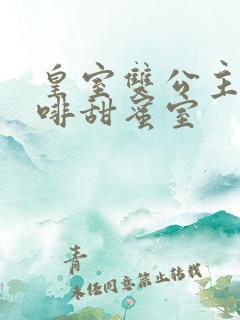 皇室雙公主
啡甜蜜室
青
未经同意禁止转载